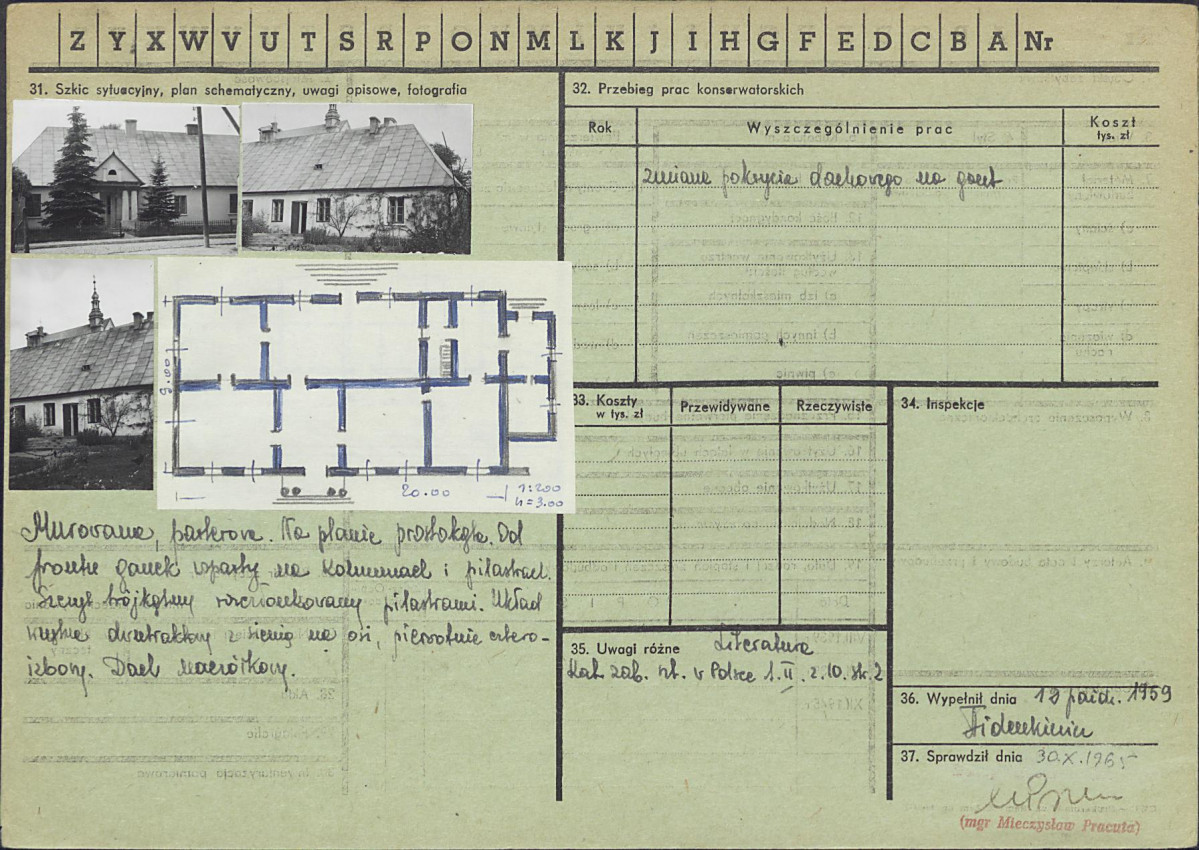 Z Y X W V U T S R P O N M L K J I H G F E D C B A Nr
31. Szkic sytuacyjny, plan schematyczny, uwagi opisowe, fotografia
9.00
20.00
1:200
h=3.00
Murowana, parterowa. Na planie prostokąta. Od
frontu ganek wsparty na kolumnach i pilastrach.
Szczyt trójkątny rozczłonkowany pilastrami. Układ
wnętrza dwutraktowy z sienią na osi, pierwotnie cztero-
izbowy. Dach naczółkowy.
32. Przebieg prac konserwatorskich
Rok
Wyszczególnienie prac
Koszt
tys. zł
zmiana pokrycia dachowego na gont
33. Koszty
w tys. zł
Przewidywane
Rzeczywiste
34. Inspekcje
35. Uwagi różne
Literatura
Kat. zab. szt. w Polsce t. II. z. 10. str. 2
36. Wypełnił dnia 12 paźdz. 1959
37. Sprawdził dnia 30.X.1965
(mgr Mieczysław Pracuta)